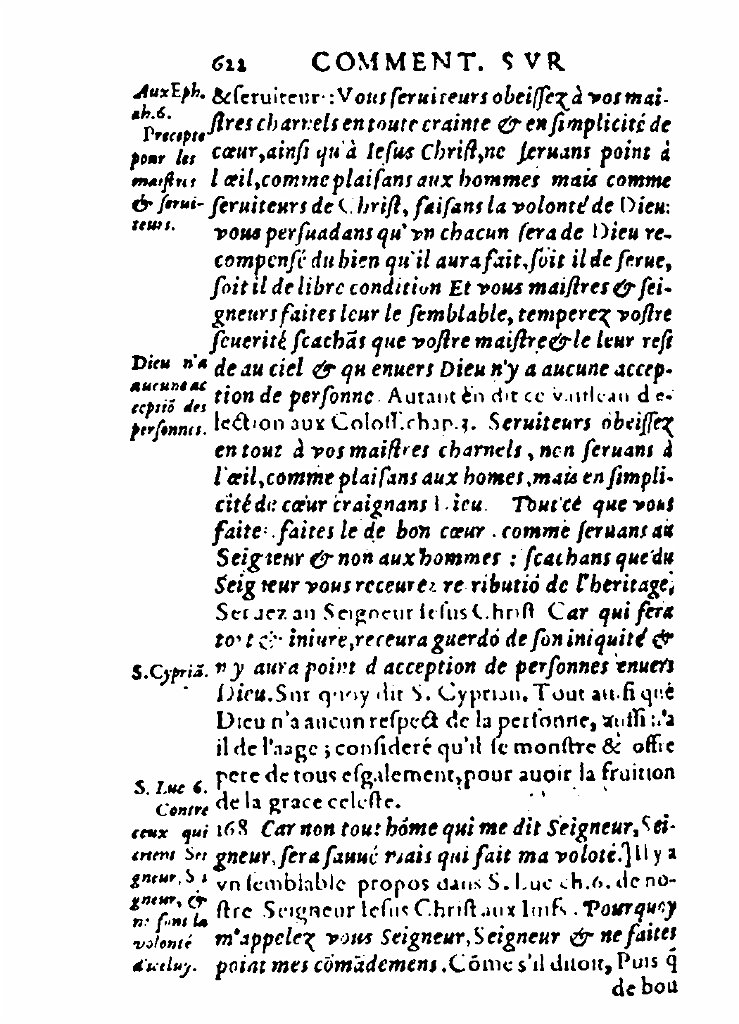 622 COMMENT. SVR
Aux Eph.
ch. 6.
Precepte
pour les
maistres
& serui-
teurs.
& seruiteur: Vous seruiteurs obeissez à vos mai-
stres charnels en toute crainte & en simplicité de
cœur, ainsi qu'à Iesus Christ, ne seruans point à
l'œil, comme plaisans aux hommes mais comme
seruiteurs de Christ, faisans la volonté de Dieu:
vous persuadans qu'vn chacun sera de Dieu re-
compensé du bien qu'il aura fait, soit il de serue,
soit il de libre condition Et vous maistres & sei-
gneurs faites leur le semblable, temperez vostre
seuerité scachãs que vostre maistre & le leur resi
Dieu n'a
aucune ac
ceptiõ des
personnes.
de au ciel & qu enuers Dieu n'y a aucune accep-
tion de personne. Autant en dit ce vaisseau d'e-
lection aux Coloss. chap. 3. Seruiteurs obeissez
en tout à vos maistres charnels, non seruans à
l'œil, comme plaisans aux homes, mais en simpli-
cité de cœur craignans Dieu. Tout cé que vous
faites. faites le de bon cœur. comme seruans au
Seigneur & non aux hommes: scachans que du
Seigneur vous receurez retributiõ de l'heritage,
Seruez au Seigneur Iesus Christ Car qui fera
tort & iniure, receura guerdõ de son iniquité &
S. Cypriã.
n'y aura point d'acception de personnes enuers
Dieu. Sur quoy dit S. Cyprian. Tout ausi que
Dieu n'a aucun respect de la personne, aussi n'a
il de l'aage; consideré qu'il se monstre & offre
pere de tous esgalement, pour auoir la fruition
de la grace celeste.
S. Luc 6.
Contre
ceux qui
crient Sei
gneur, Sei
gneur, &
ne font la
volonté
d'iceluy.
168 Car non tout hõme qui me dit Seigneur, Sei-
gneur, sera sauué mais qui fait ma volõté.] Il y a
vn semblable propos dans S. Luc ch. 6. de no-
stre Seigneur Iesus Christ aux Iuifs. Pourquoy
m'appelez vous Seigneur, Seigneur & ne faites
point mes cõmãdemens. Cõme s'il disoit, Puis q̃
de bou